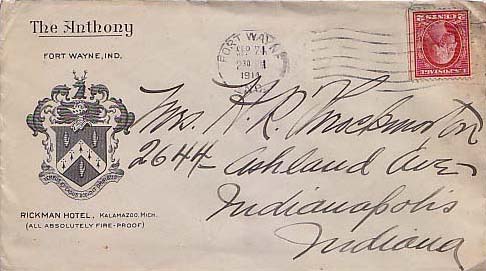 The Anthony
FORT WAYNE, IND.
RICKMAN HOTEL, KALAMAZOO, MICH.
(ALL ABSOLUTELY FIRE-PROOF)
FORT WAYNE
SEP 21
230
1914
Mrs. H. R. Throckmorton
2644 - Ashland Ave
Indianapolis
Indiana
U.S.POSTAGE
CENTS 2